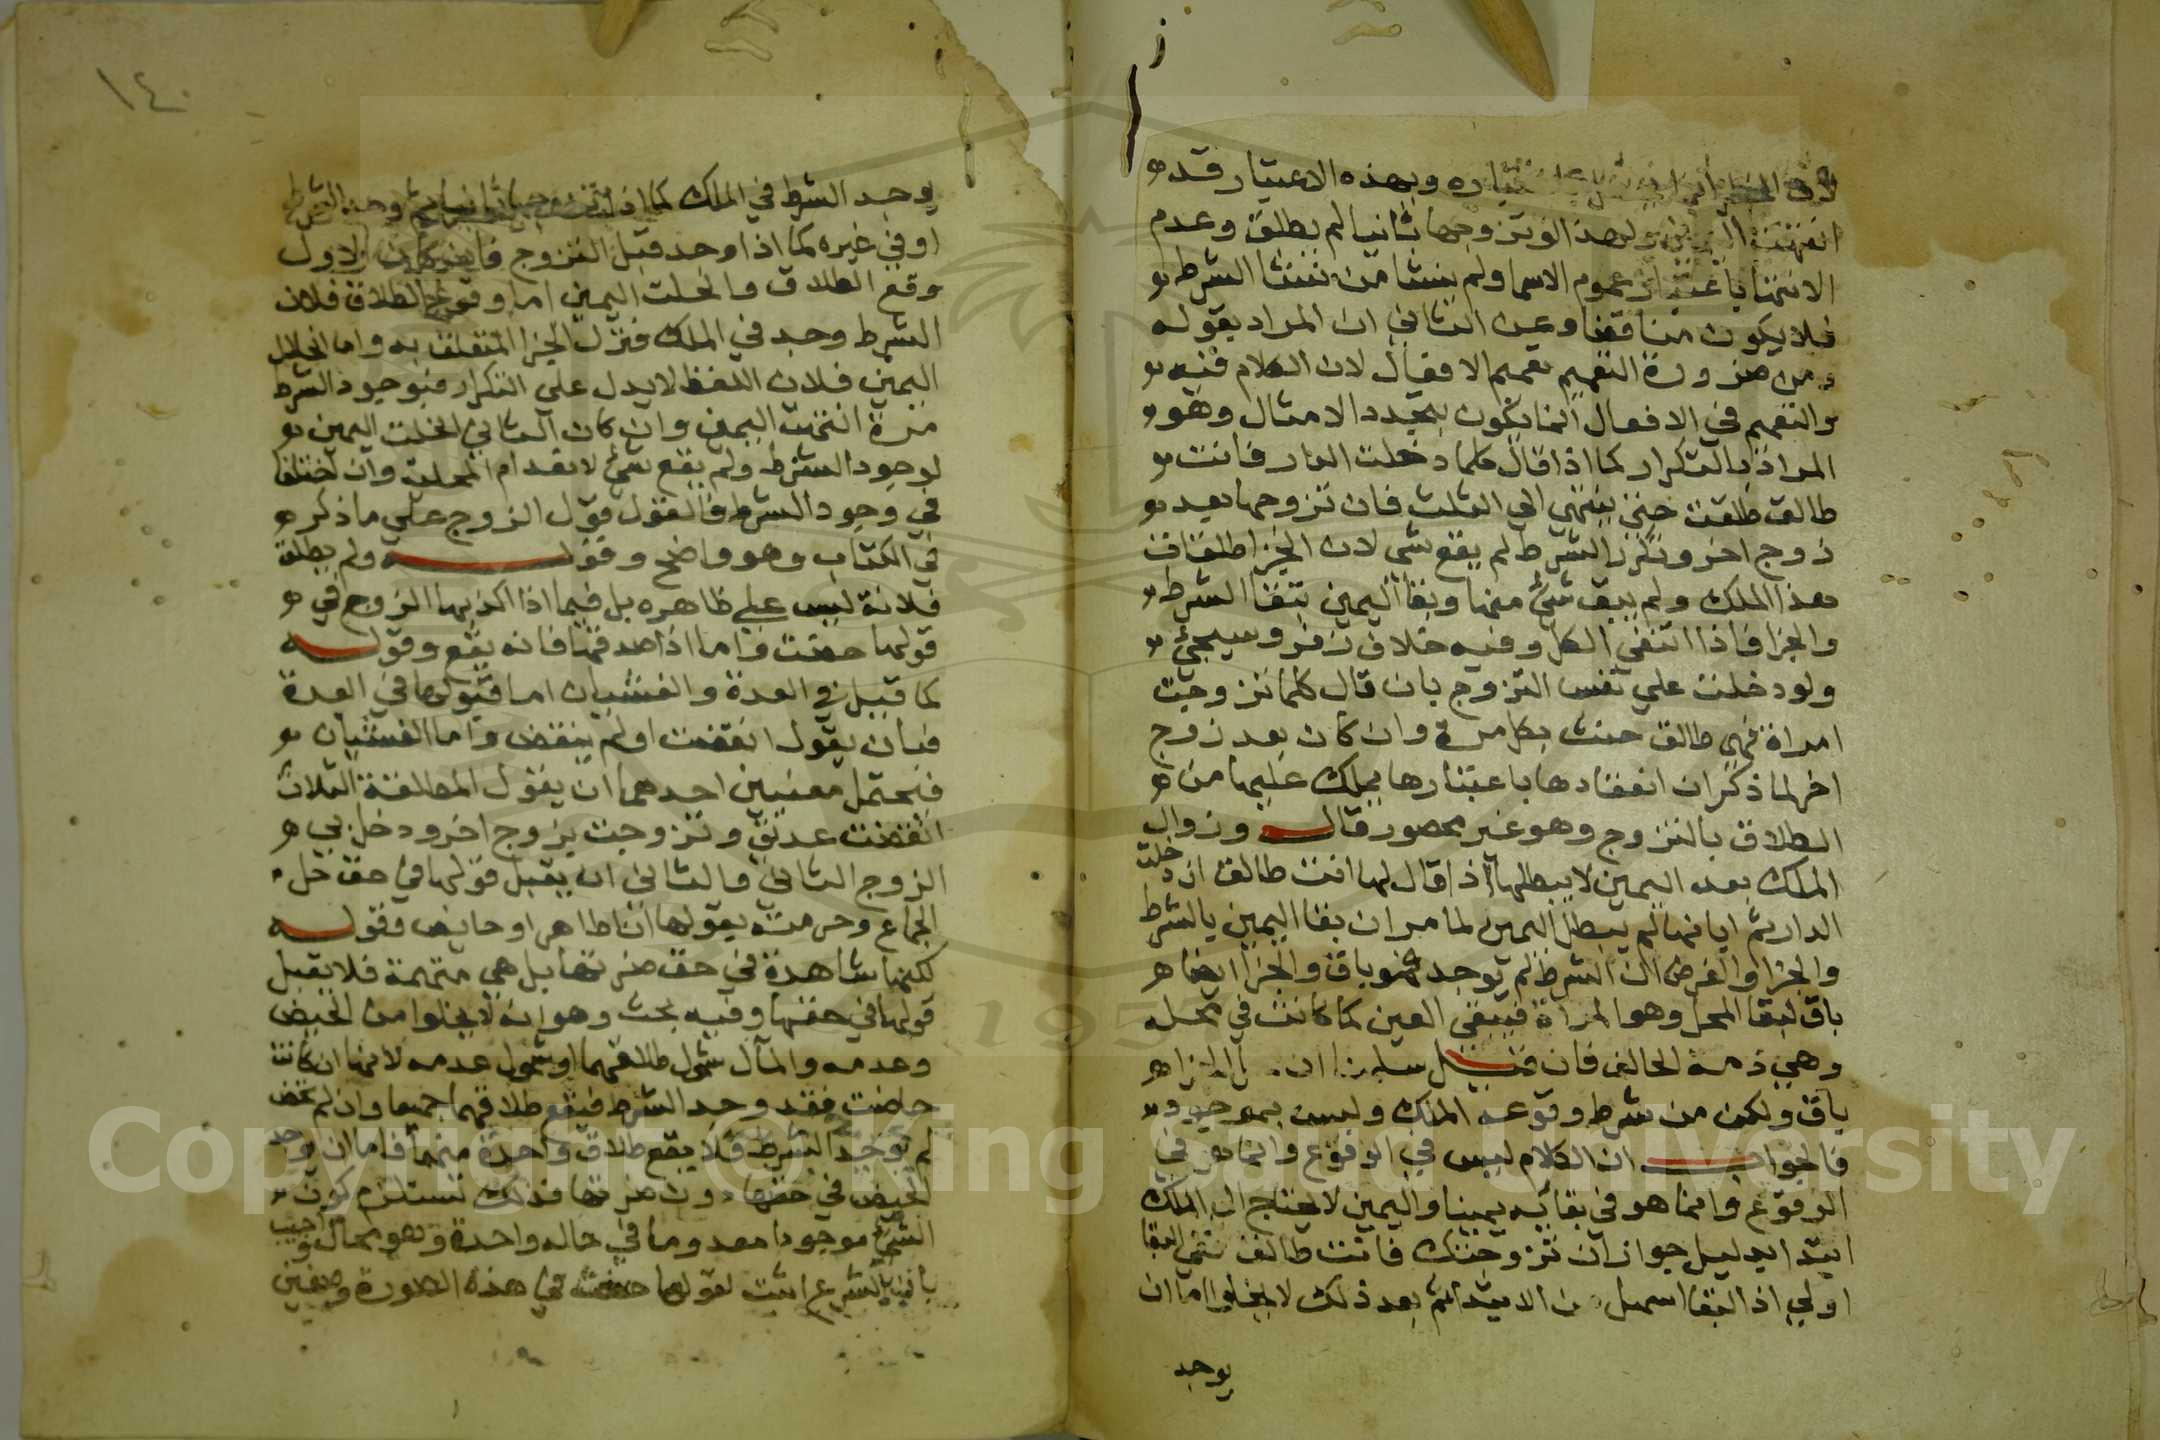 وبهذه الاعتبار قد
انتهت اليمين ولهذا لو تزوجها ثانيا لم يطلق وعدم
الانتها باعتبار عموم الاسما ولم ينشا من نشا الشرط
فلا يكون مناقضا وعن الثاني ان المراد بقوله
ومن ضرورة التعميم تعميم الافعال لان الكلام فيه
والتعميم في الافعال انما يكون بتجدد الامثال وهو
المراد بالتكرار كما اذا قال كلما دخلت الدار فانت
طالق طلقت حتى ينتهي الي الثلث فان تزوجها بعد
زوج اخر وتكرر الشرط لم يقع شي لان الجزا طلقات
هذا الملك ولم يبق شئ منها وبقا اليمين ببقا الشرط
والجزا فاذا انتفى الكل وفيه خلاف زفر وسيجئ
ولو دخلت علي نفس التزوج بان قال كلما تزوجت
امراة فهي طالق حنث بكل مرة وان كان بعد زوج
اخر لما ذكر ان انعقادها باعتبار ما يملك عليها من
الطلاق بالتزوج وهو غير محصور قال وزوال
الملك بعد اليمين لا يبطلها اذا قال لها انت طالق ان دخلت
الدار ثم ابانها لم يبطل اليمين لما مر ان بقا اليمين بالشرط
والجزا والفرض ان الشرط لم يوجد فهو باق والجزا ايضا
باق لبقا المحل وهو المراة فيبقى اليمين كما كانت في محله
وهي ذمة الحالف فان قيل سلمنا ان الجزا
باق ولكن من شرط وقوعه الملك وليس بموجود
فالجواب ان الكلام ليس في الوقوع وانما هو في
الوقوع وانما هو في بقائه يمينا واليمين لا يحتاج الى الملك
ابتدا بدليل جواز ان تزوجتك فانت طالق ففي البقا
اولي اذ البقا اسهل من الابتدا ثم بعد ذلك لا يخلوا اما ان
يوجد
١٤٠
يوجد الشرط في الملك كما اذا تزوجها ثانيا ثم وجد الشرط
او في غيره كما اذا وجد قبل التزوج فان كان الاول
وقع الطلاق وانحلت اليمين اما وقوع الطلاق فلان
الشرط وجد في الملك فنزل الجزا المتعلق به واما انحلال
اليمين فلان اللفظ لا يدل علي التكرار فبوجود الشرط
مرة انتهت اليمين وان كان الثاني انحلت اليمين
لوجود الشرط ولم يقع شئ لانعدام المحلية وان اختلفا
في وجود الشرط فالقول قول الزوج علي ما ذكر
في الكتاب وهو واضح وقوله ولم يطلق
فلانة ليس علي ظاهره بل فيما اذا اكذبها الزوج في
قولها حضت واما اذا صدقها فانه يقع وقوله
كما قبل في العدة والغشيان اما قبولها في العدة
فبان يقول انقضت او لم ينقض واما الغشيان
فيحتمل معنيين احدهما ان يقول المطلقة الثلاث
انقضت عدتي وتزوجت بزوج اخر ودخل بي
الزوج الثاني والثاني ان يقبل قولها في حق حل
الجماع وحرمته بقولها انا طاهر او حايض وقوله
لكنها شاهدة في حق ضرتها بل هي متهمة فلا يقبل
قولها في حقها وفيه بحث وهو انه لا يخلوا من الحيض
وعدمه والمآل شمول طلاقهما او شمول عدمه لانها ان كانت
حاضت فقد وجد الشرط فيقع طلاقهما جميعا وان لم تحض
لم يوجد الشرط فلا يقع طلاق واحدة منهما فاما ان يوجد
الحيض في حقها دون ضرتها فذلك تستلزم كون
الشئ موجودا معدوما في حالة واحدة وهو محال واجيب
بان الشرع اثبت لقولها حضت في هذه الصورة وصفين